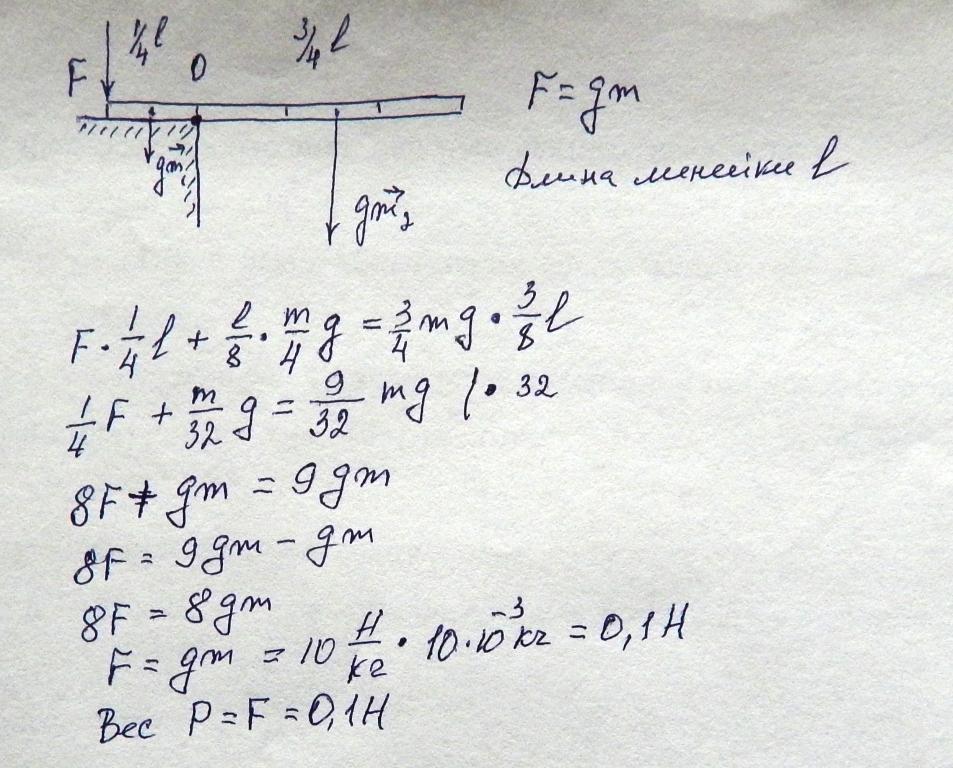 1/4 l 3/4 l
F O
F = gm
gm
Длина линейки l
gm₂
F · 1/4 l + l/8 · m/4 g = 3/4 mg · 3/8 l
1/4 F + m/32 g = 9/32 mg | · 32
8F + gm = 9gm
8F = 9gm - gm
8F = 8gm
F = gm = 10 Н/кг · 10·10⁻³кг = 0,1Н
Вес P = F = 0,1Н